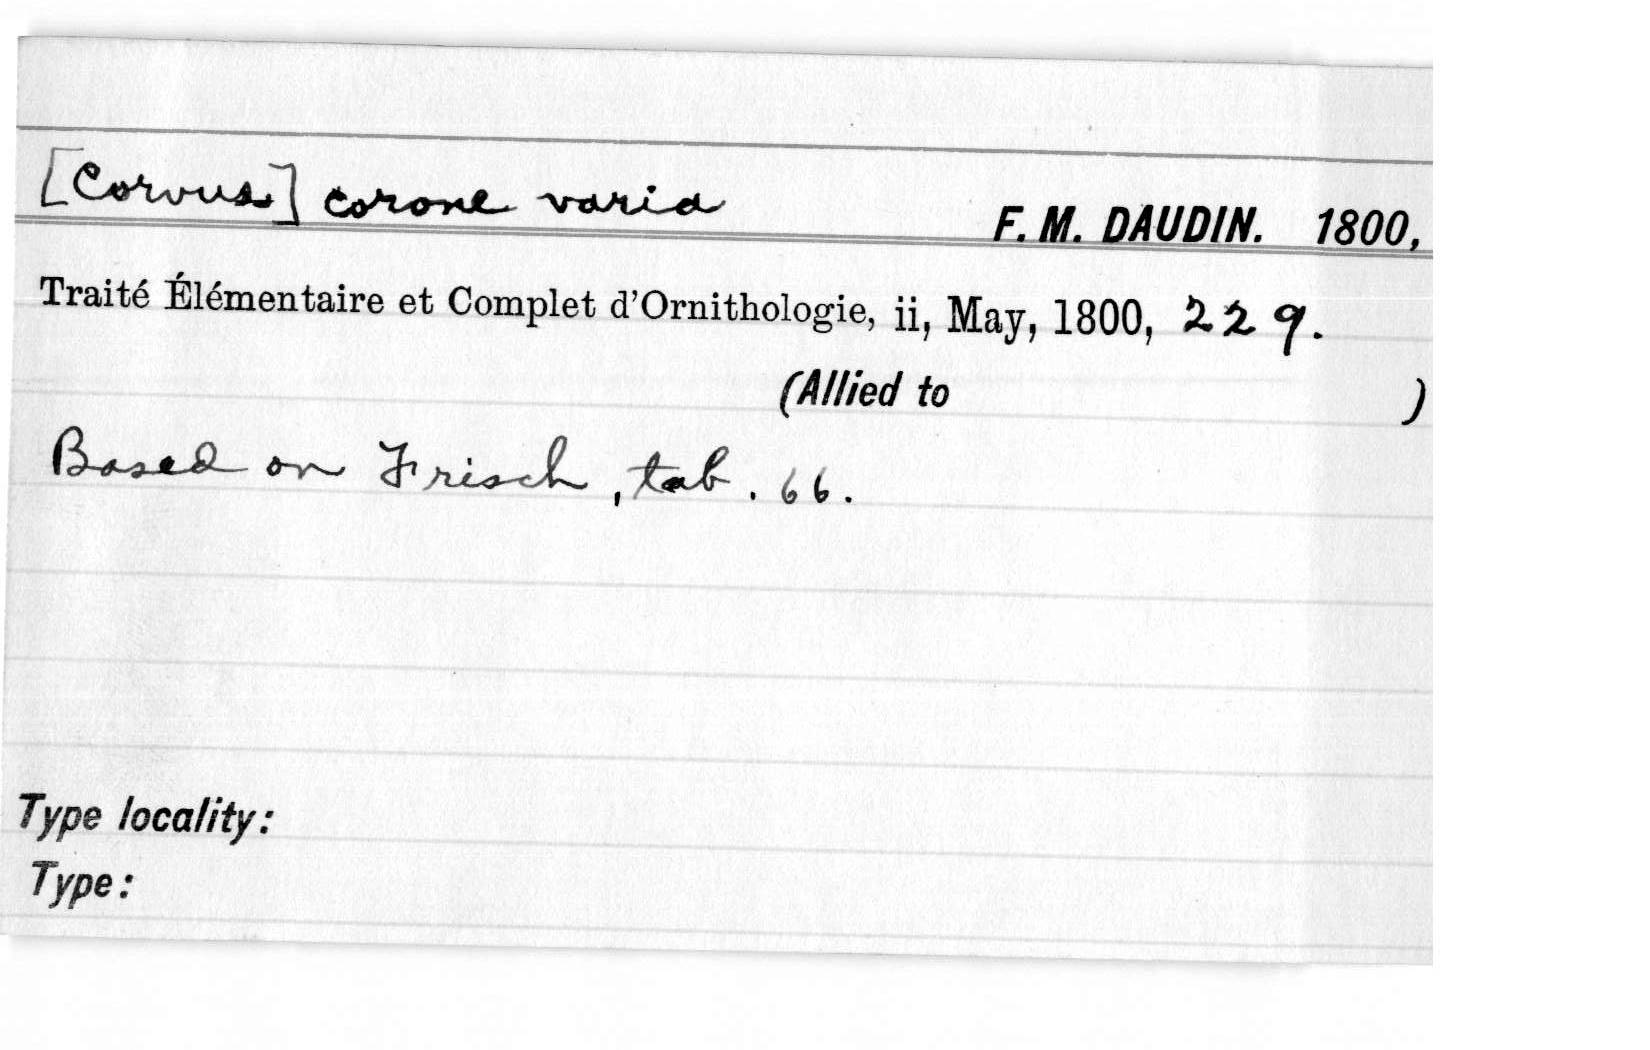 [Corvus] corone varia F. M. DAUDIN. 1800,
Traité Élémentaire et Complet d'Ornithologie, ii, May, 1800, 229.
(Allied to )
Based on Frisch, tab. 66.
Type locality:
Type: